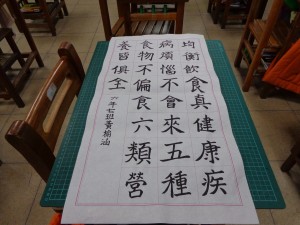 均衡飲食真健康疾
病煩惱不會來五種
食物不偏食六類營
養皆俱全
六年七班黃